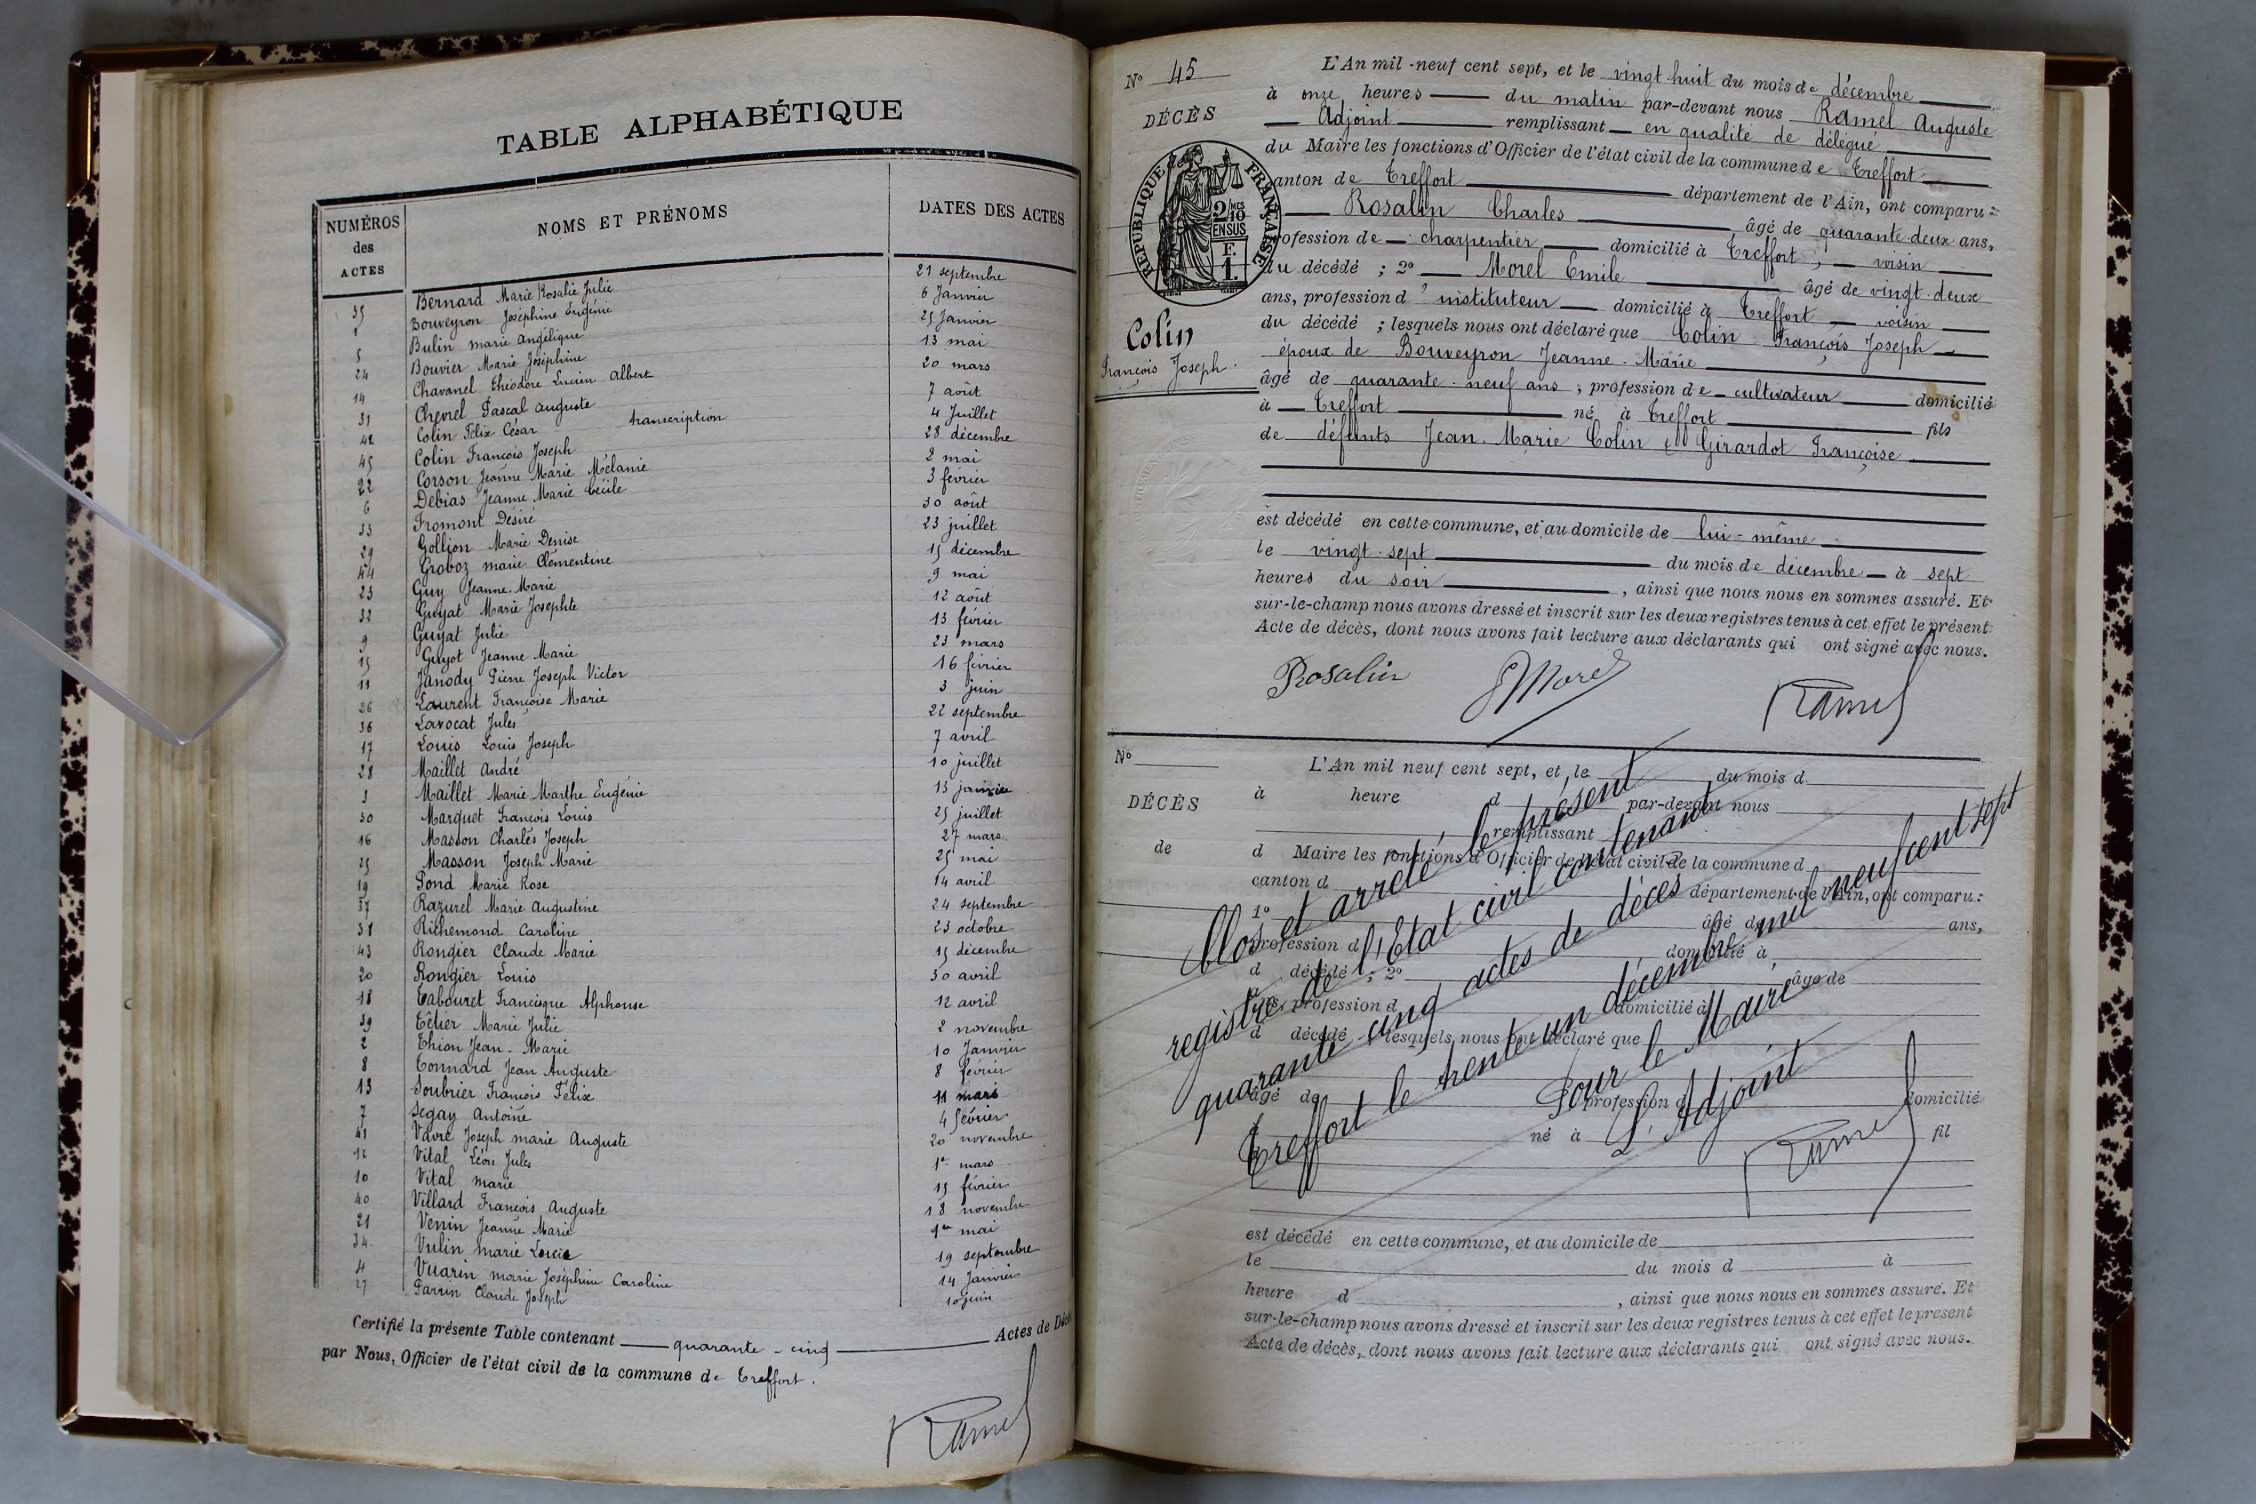 TABLE ALPHABÉTIQUE
NUMÉROS des ACTES
NOMS ET PRÉNOMS
DATES DES ACTES
35 Bernard Marie Rosalie Julie 21 septembre
1 Bouveyron Joséphine Eugénie 6 Janvier
5 Bulin marie angélique 25 Janvier
24 Bouvier Marie Joséphine 13 mai
14 Chavanel Théodore Lucien Albert 20 mars
31 Chevrel Pascal auguste 7 août
42 Colin Félix César transcription 4 Juillet
45 Colin François Joseph 28 décembre
22 Corson Jeanne Marie Mélanie 2 mai
6 Debias Jeanne Marie Cécile 3 février
33 Fromont Désiré 30 août
29 Gollion Marie Denise 23 juillet
44 Groboz marie Clémentine 15 décembre
23 Guy Jeanne Marie 9 mai
32 Guyat Marie Josephte 12 août
9 Guyat Julie 13 février
15 Guyot Jeanne Marie 23 mars
11 Janody Pierre Joseph Victor 16 février
26 Laurent Françoise Marie 3 juin
36 Lavocat Jules 22 septembre
17 Louis Louis Joseph 7 avril
28 Maillet André 10 juillet
3 Maillet Marie Marthe Eugénie 13 janvier
30 Marquet François Louis 25 juillet
16 Masson Charles Joseph 27 mars
25 Masson Joseph Marie 25 mai
19 Pond Marie Rose 14 avril
37 Razurel Marie Augustine 24 septembre
38 Richemond Caroline 23 octobre
43 Rongier Claude Marie 15 décembre
20 Rongier Louis 30 avril
18 Tabouret Francisque Alphonse 12 avril
39 Têtier Marie Julie 2 novembre
2 Thion Jean-Marie 10 Janvier
8 Tonnard Jean Auguste 8 février
13 Soubrier François Félix 11 mars
7 Segay Antoine 4 février
41 Vavre Joseph marie Auguste 20 novembre
12 Vital Léon Jules 1er mars
10 Vital marie 15 février
40 Villard François Auguste 18 novembre
21 Venin Jeanne Marie 1er mai
34 Vulin marie Louise 19 septembre
4 Vuarin marie Joséphine Caroline 14 Janvier
27 Farrin Claude Joseph 10 juin
Certifié la présente Table contenant quarante-cinq Actes de Décès
par Nous, Officier de l'état civil de la commune de Treffort.
Ramel
No 45
DÉCÈS
de
RÉPUBLIQUE FRANÇAISE
2/10 MES
EN SUS
1 F.
Colin
François Joseph.
L'An mil-neuf cent sept, et le vingt-huit du mois de décembre
à onze heures du matin par-devant nous Ramel Auguste
Adjoint remplissant en qualité de délégué
du Maire les fonctions d'Officier de l'état civil de la commune de Treffort
canton de Treffort département de l'Ain, ont comparu :
Rosalin Charles âgé de quarante-deux ans,
profession de charpentier domicilié à Treffort, voisin
du décédé ; 2o Morel Emile âgé de vingt-deux
ans, profession d'instituteur domicilié à Treffort voisin
du décédé ; lesquels nous ont déclaré que Colin François Joseph
époux de Bouveyron Jeanne-Marie
âgé de quarante-neuf ans ; profession de cultivateur domicilié
à Treffort né à Treffort fils
de défunts Jean-Marie Colin et Girardot Françoise
est décédé en cette commune, et au domicile de lui-même
le vingt-sept du mois de décembre à sept
heures du soir, ainsi que nous nous en sommes assuré. Et
sur-le-champ nous avons dressé et inscrit sur les deux registres tenus à cet effet le présent
Acte de décès, dont nous avons fait lecture aux déclarants qui ont signé avec nous.
Rosalin EMorel Ramel
No
DÉCÈS
de
L'An mil neuf cent sept, et le du mois d
à heure d par-devant nous
remplissant
d Maire les fonctions d'Officier de l'état civil de la commune d
canton d département de l'Ain, ont comparu :
1o âgé de ans,
profession d domicilié à
d décédé ; 2o âgé de
ans, profession d domicilié à
d décédé ; lesquels nous ont déclaré que
âgé de profession d domicilié
né à fil
est décédé en cette commune, et au domicile de
le du mois d à
heure d , ainsi que nous nous en sommes assuré. Et
sur-le-champ nous avons dressé et inscrit sur les deux registres tenus à cet effet le présent
Acte de décès, dont nous avons fait lecture aux déclarants qui ont signé avec nous.
Clos et arrêté le présent
registre de l'Etat civil contenant
quarante cinq actes de décès
Treffort le trente un décembre mil neuf cent sept
Pour le Maire
L'Adjoint
Ramel